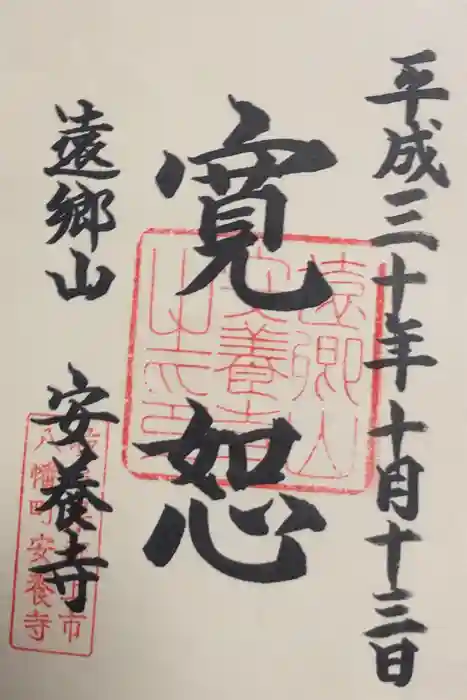 平成三十年十月十三日
寛恕
遠郷山 安養寺
遠郷山
安養寺
之印
市
八幡町安養寺